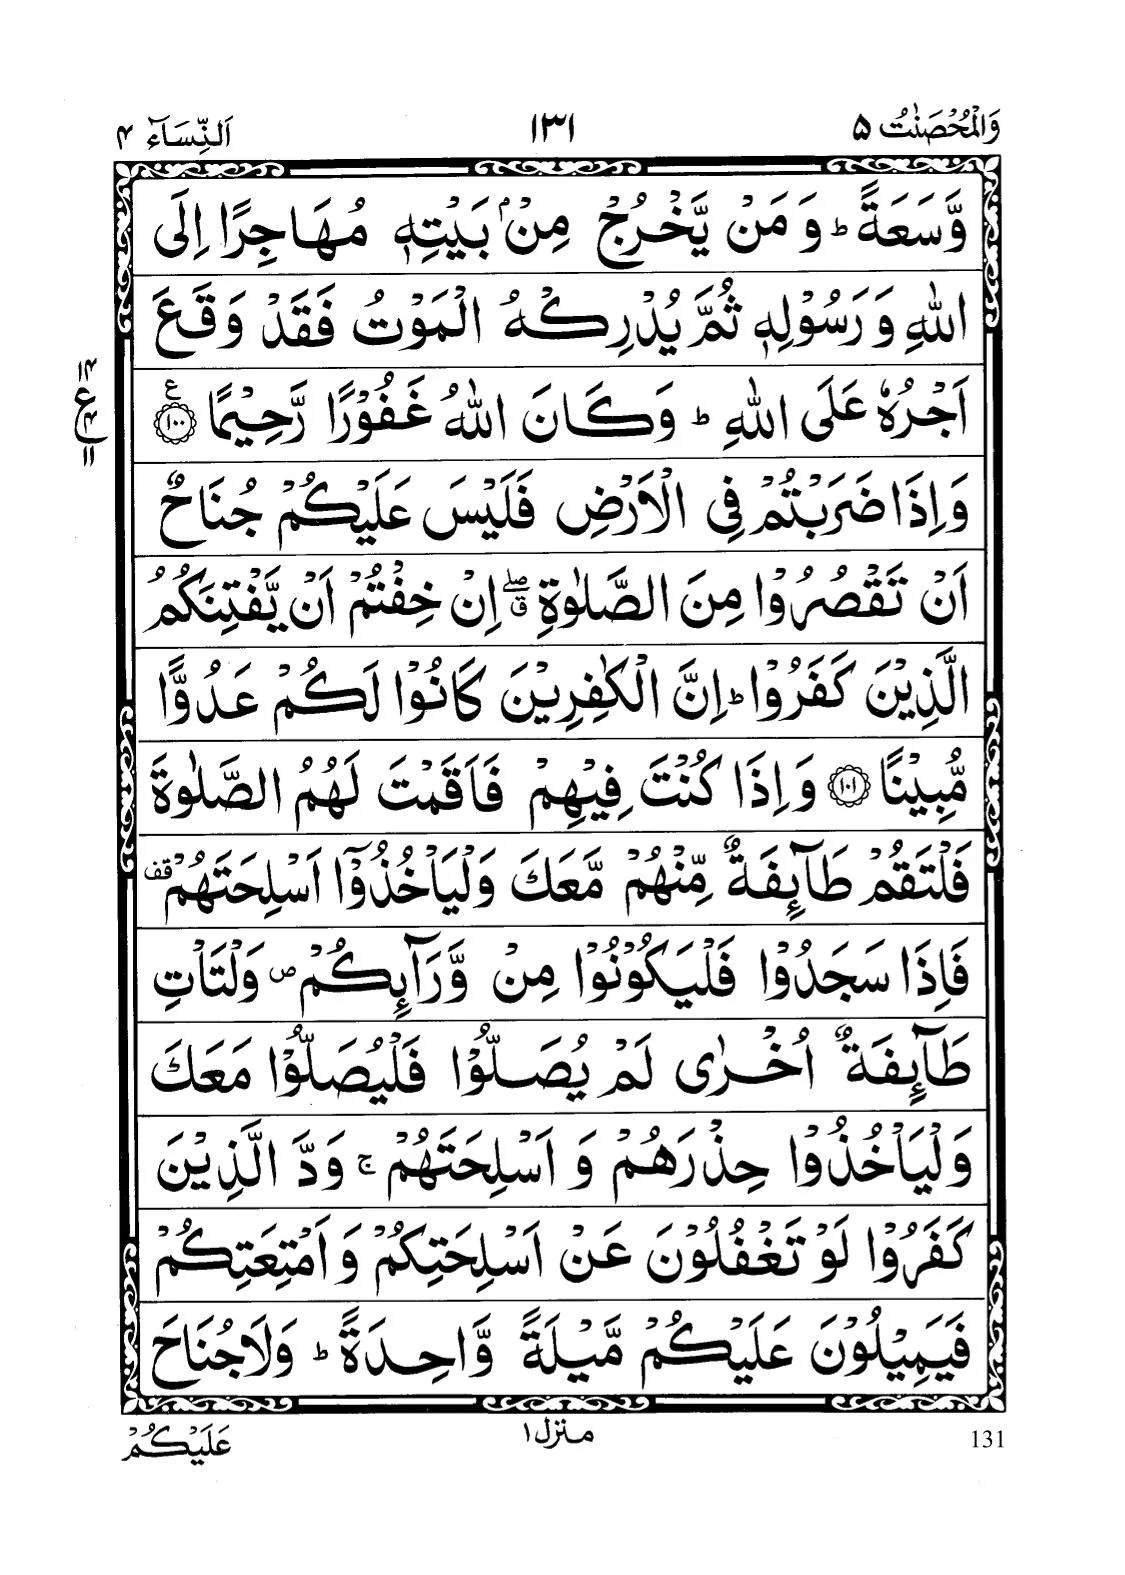 وَالْمُحْصَنٰتُ ۵
۱۳۱
اَلنِّسَآء ۴
وَّسَعَةً ؕ وَ مَنْ يَّخْرُجْ مِنْۢ بَيْتِهٖ مُهَاجِرًا اِلَى
اللّٰهِ وَ رَسُوْلِهٖ ثُمَّ يُدْرِكْهُ الْمَوْتُ فَقَدْ وَقَعَ
اَجْرُهٗ عَلَى اللّٰهِ ؕ وَكَانَ اللّٰهُ غَفُوْرًا رَّحِيْمًا ۧ ﴿۱۰۰﴾
۱۴
ع
۴
۱۱
وَاِذَا ضَرَبْتُمْ فِى الْاَرْضِ فَلَيْسَ عَلَيْكُمْ جُنَاحٌ
اَنْ تَقْصُرُوْا مِنَ الصَّلٰوةِ ۖۗ اِنْ خِفْتُمْ اَنْ يَّفْتِنَكُمُ
الَّذِيْنَ كَفَرُوْا ؕ اِنَّ الْكٰفِرِيْنَ كَانُوْا لَكُمْ عَدُوًّا
مُّبِيْنًا ﴿۱۰۱﴾ وَاِذَا كُنْتَ فِيْهِمْ فَاَقَمْتَ لَهُمُ الصَّلٰوةَ
فَلْتَقُمْ طَآئِفَةٌ مِّنْهُمْ مَّعَكَ وَلْيَاْخُذُوْۤا اَسْلِحَتَهُمْ قف
فَاِذَا سَجَدُوْا فَلْيَكُوْنُوْا مِنْ وَّرَآئِكُمْ ص وَلْتَاْتِ
طَآئِفَةٌ اُخْرٰى لَمْ يُصَلُّوْا فَلْيُصَلُّوْا مَعَكَ
وَلْيَاْخُذُوْا حِذْرَهُمْ وَ اَسْلِحَتَهُمْ ۚ وَدَّ الَّذِيْنَ
كَفَرُوْا لَوْ تَغْفُلُوْنَ عَنْ اَسْلِحَتِكُمْ وَ اَمْتِعَتِكُمْ
فَيَمِيْلُوْنَ عَلَيْكُمْ مَّيْلَةً وَّاحِدَةً ؕ وَلَا جُنَاحَ
عَلَيْكُمْ
منزل ۱
131